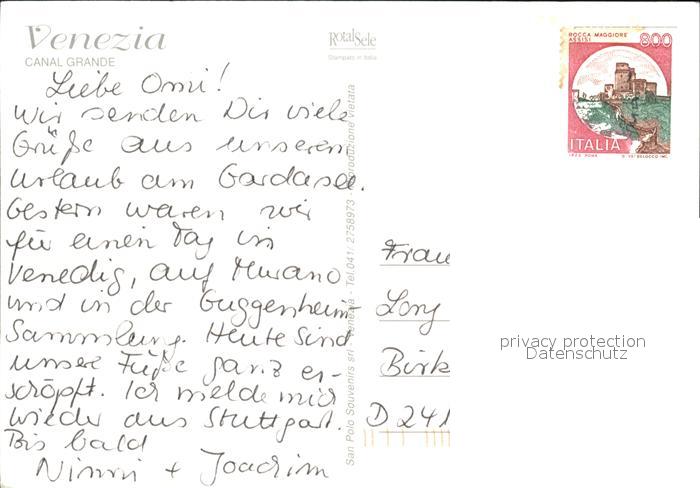 Venezia
CANAL GRANDE
RotalSele
Stampato in Italia
ROCCA MAGGIORE
ASSISI
800
ITALIA
Liebe Omi!
Wir senden Dir viele
Grüße aus unserem
Urlaub am Gardasee.
Gestern waren wir
für einen Tag in
Venedig, auf Murano
und in der Guggenheim-
Sammlung. Heute sind
unsere Füße ganz er-
schöpft. Ich melde mich
wieder aus Stuttgart.
Bis bald
Ninni + Joachim
San Polo Souvenirs srl - Venezia - Tel. 041/ 2758973 riproduzione vietata
Frau
Lony
Birk
D 241
privacy protection
Datenschutz